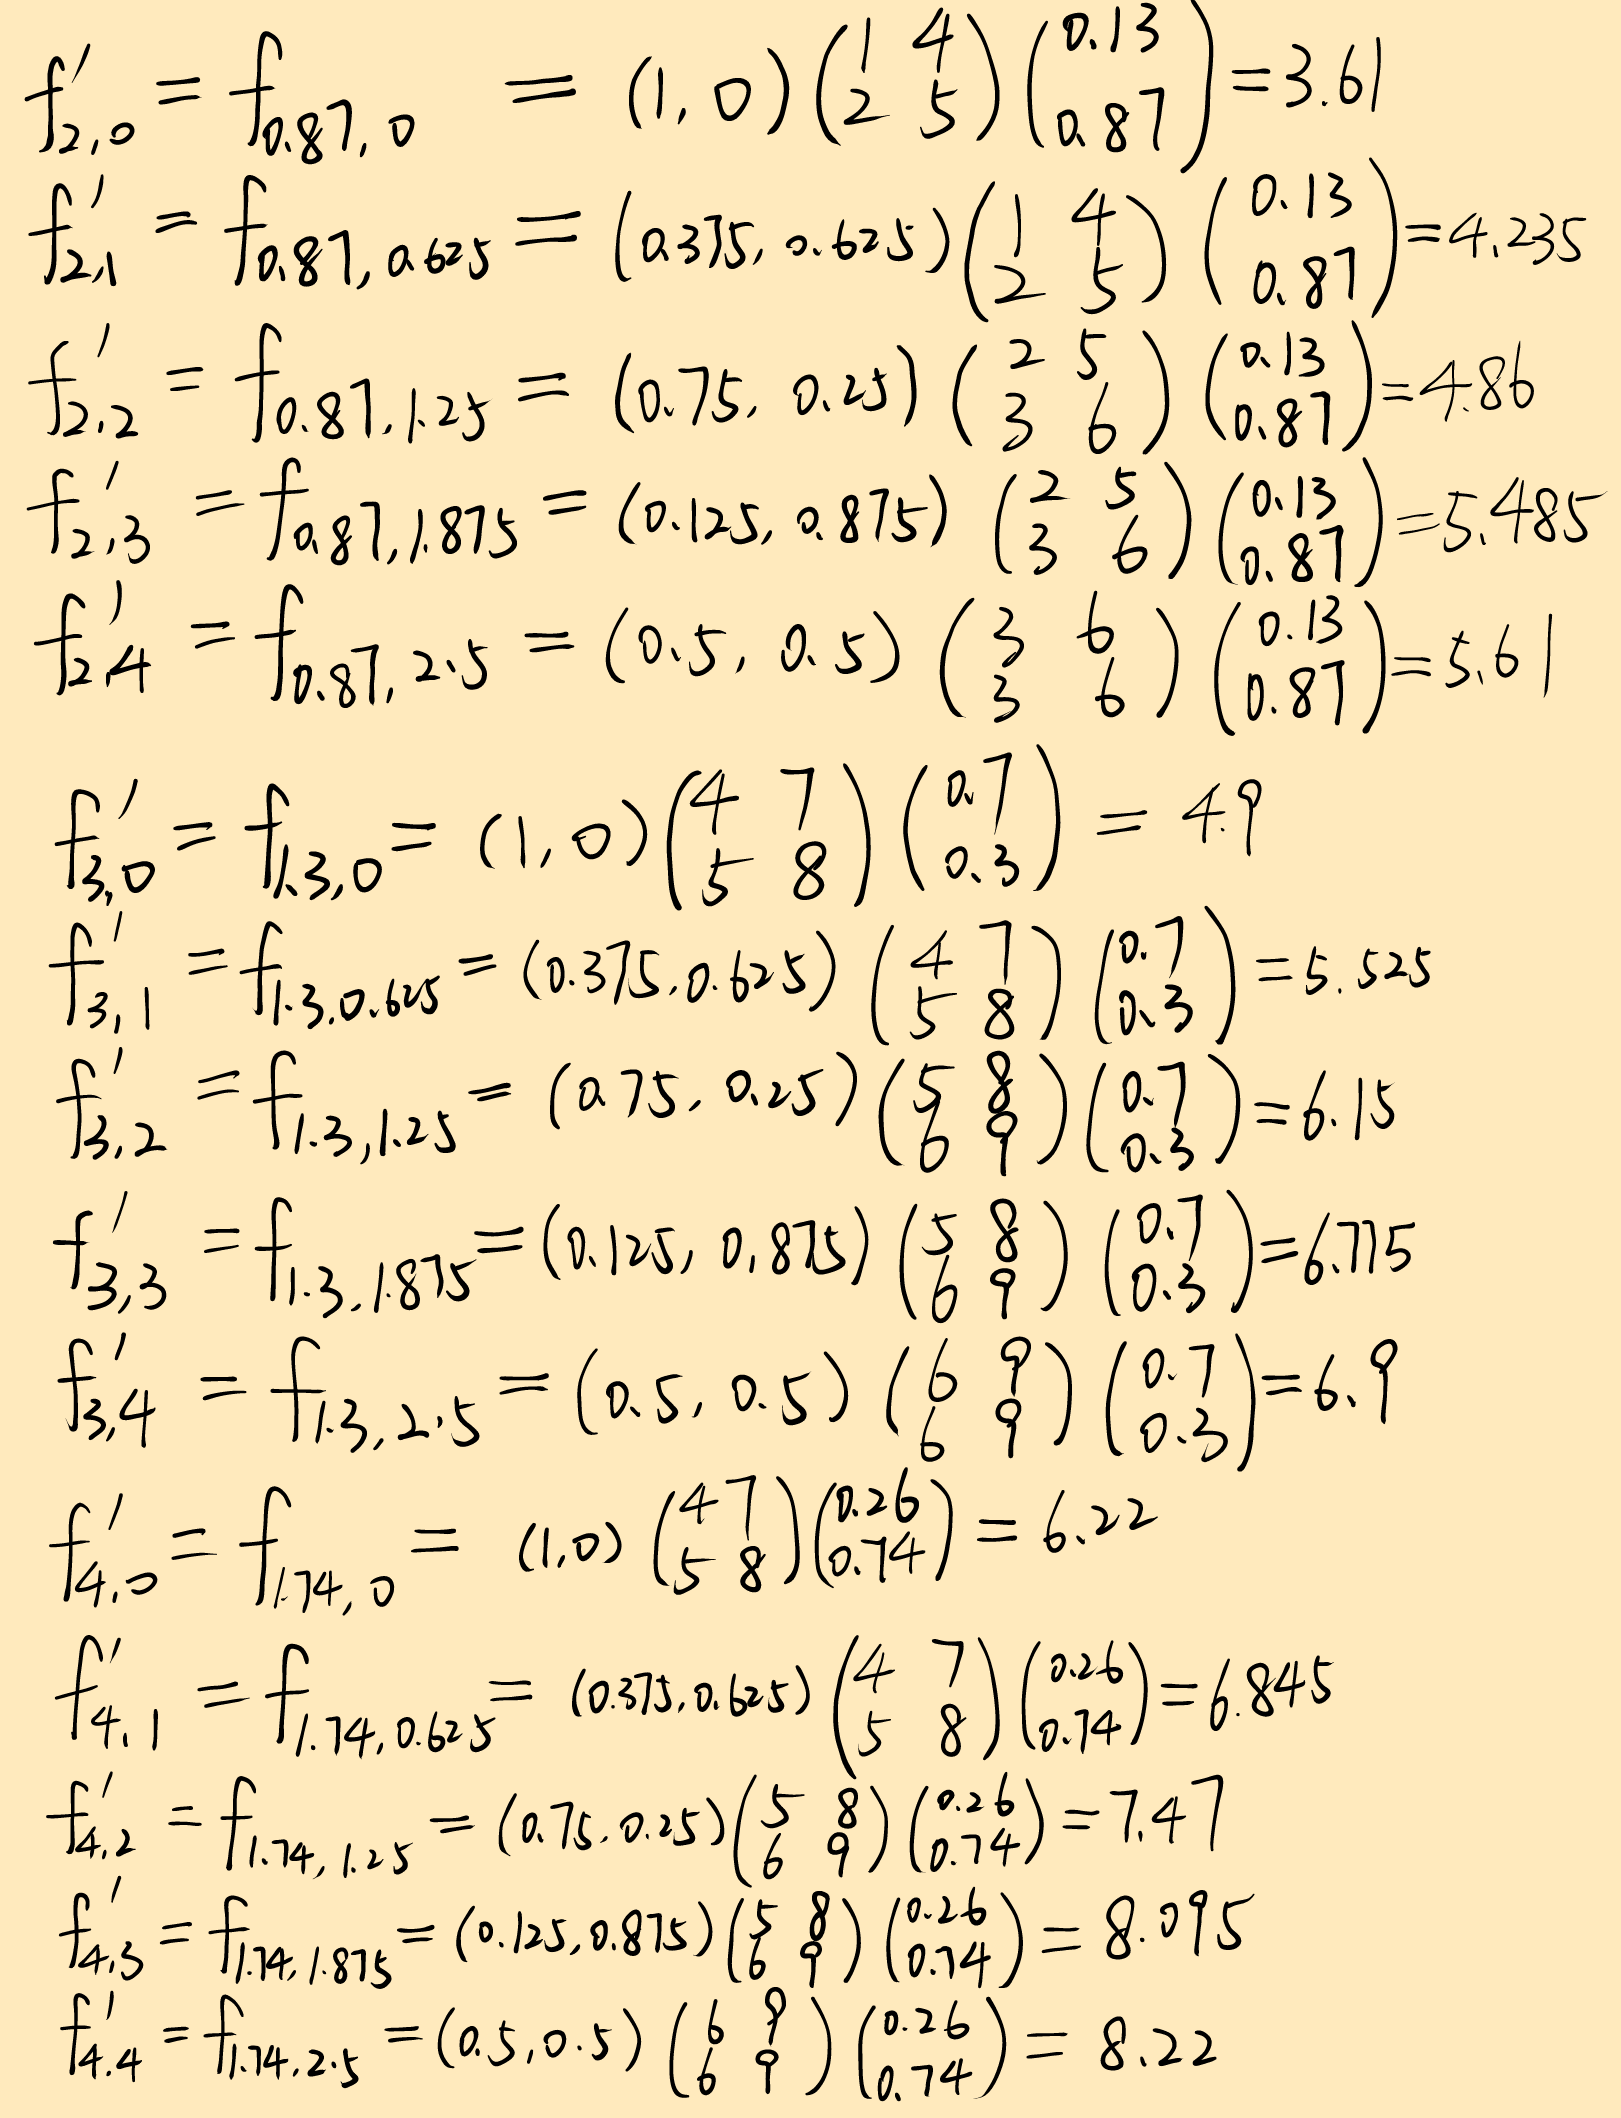 f'_{2,0} = f_{0.87,0} = (1,0) \begin{pmatrix} 1 & 4 \\ 2 & 5 \end{pmatrix} \begin{pmatrix} 0.13 \\ 0.87 \end{pmatrix} = 3.61
f'_{2,1} = f_{0.87,0.625} = (0.375,0.625) \begin{pmatrix} 1 & 4 \\ 2 & 5 \end{pmatrix} \begin{pmatrix} 0.13 \\ 0.87 \end{pmatrix} = 4.235
f'_{2,2} = f_{0.87,1.25} = (0.75,0.25) \begin{pmatrix} 2 & 5 \\ 3 & 6 \end{pmatrix} \begin{pmatrix} 0.13 \\ 0.87 \end{pmatrix} = 4.86
f'_{2,3} = f_{0.87,1.875} = (0.125,0.875) \begin{pmatrix} 2 & 5 \\ 3 & 6 \end{pmatrix} \begin{pmatrix} 0.13 \\ 0.87 \end{pmatrix} = 5.485
f'_{2,4} = f_{0.87,2.5} = (0.5,0.5) \begin{pmatrix} 3 & 6 \\ 3 & 6 \end{pmatrix} \begin{pmatrix} 0.13 \\ 0.87 \end{pmatrix} = 5.61
f'_{3,0} = f_{1.3,0} = (1,0) \begin{pmatrix} 4 & 7 \\ 5 & 8 \end{pmatrix} \begin{pmatrix} 0.7 \\ 0.3 \end{pmatrix} = 4.9
f'_{3,1} = f_{1.3,0.625} = (0.375,0.625) \begin{pmatrix} 4 & 7 \\ 5 & 8 \end{pmatrix} \begin{pmatrix} 0.7 \\ 0.3 \end{pmatrix} = 5.525
f'_{3,2} = f_{1.3,1.25} = (0.75,0.25) \begin{pmatrix} 5 & 8 \\ 6 & 9 \end{pmatrix} \begin{pmatrix} 0.7 \\ 0.3 \end{pmatrix} = 6.15
f'_{3,3} = f_{1.3,1.875} = (0.125,0.875) \begin{pmatrix} 5 & 8 \\ 6 & 9 \end{pmatrix} \begin{pmatrix} 0.7 \\ 0.3 \end{pmatrix} = 6.775
f'_{3,4} = f_{1.3,2.5} = (0.5,0.5) \begin{pmatrix} 6 & 9 \\ 6 & 9 \end{pmatrix} \begin{pmatrix} 0.7 \\ 0.3 \end{pmatrix} = 6.9
f'_{4,0} = f_{1.74,0} = (1,0) \begin{pmatrix} 4 & 7 \\ 5 & 8 \end{pmatrix} \begin{pmatrix} 0.26 \\ 0.74 \end{pmatrix} = 6.22
f'_{4,1} = f_{1.74,0.625} = (0.375,0.625) \begin{pmatrix} 4 & 7 \\ 5 & 8 \end{pmatrix} \begin{pmatrix} 0.26 \\ 0.74 \end{pmatrix} = 6.845
f'_{4,2} = f_{1.74,1.25} = (0.75,0.25) \begin{pmatrix} 5 & 8 \\ 6 & 9 \end{pmatrix} \begin{pmatrix} 0.26 \\ 0.74 \end{pmatrix} = 7.47
f'_{4,3} = f_{1.74,1.875} = (0.125,0.875) \begin{pmatrix} 5 & 8 \\ 6 & 9 \end{pmatrix} \begin{pmatrix} 0.26 \\ 0.74 \end{pmatrix} = 8.095
f'_{4.4} = f_{1.74,2.5} = (0.5,0.5) \begin{pmatrix} 6 & 9 \\ 6 & 9 \end{pmatrix} \begin{pmatrix} 0.26 \\ 0.74 \end{pmatrix} = 8.22